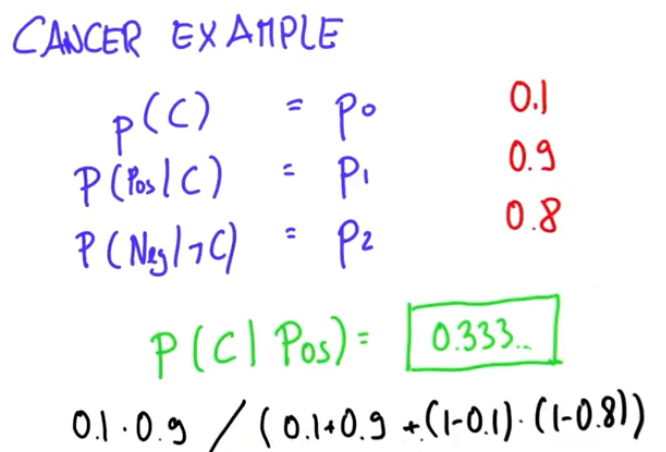 CANCER EXAMPLE
P(C) = P0 0.1
P(Pos|C) = P1 0.9
P(Neg|¬C) = P2 0.8
P(C|Pos) = 0.333..
0.1·0.9 / (0.1·0.9 + (1-0.1)·(1-0.8))